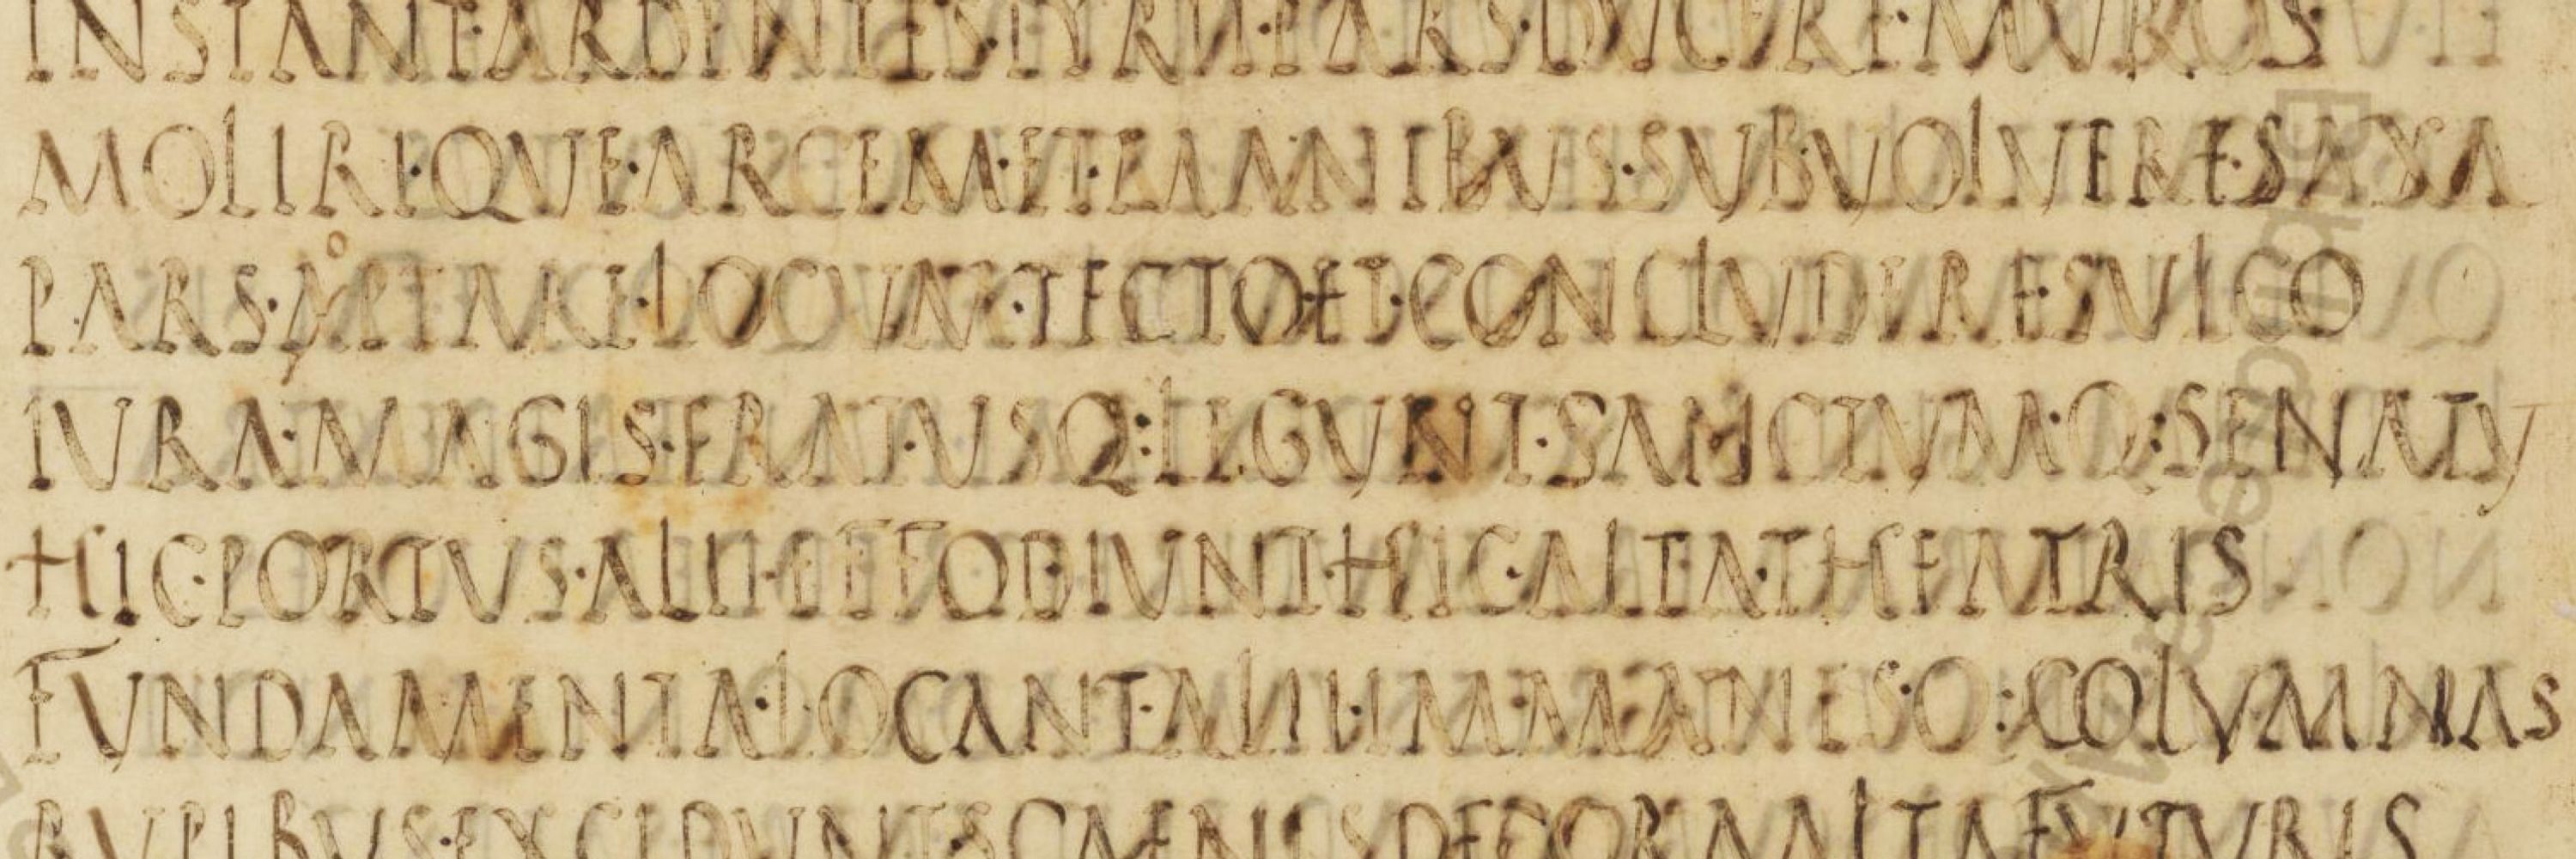 INSTANT·ARDENTES·TYRII·PARS·DVCERE·MVROS
MOLIRI·QVE·ARCEM·ET·MANIBUS·SUBVOLVERE·SAXA
PARS·APTARE·LOCVM·TECTO·ET·CONCLVDERE·SVLCO
IVRA·MAGIS·TRAT·VSQ:LEGVNT·SANCTVM·Q:SENATV
HIC·PORTVS·ALII·EFFODIVNT·HIC·ALTA·THEATRIS
FVNDAMENTA·LOCANT·ALII·IMMANES·Q:COLVMNAS
RVPIBVS·EXCIDVNT·SCAENIS DECORA ALTA FVTVRIS